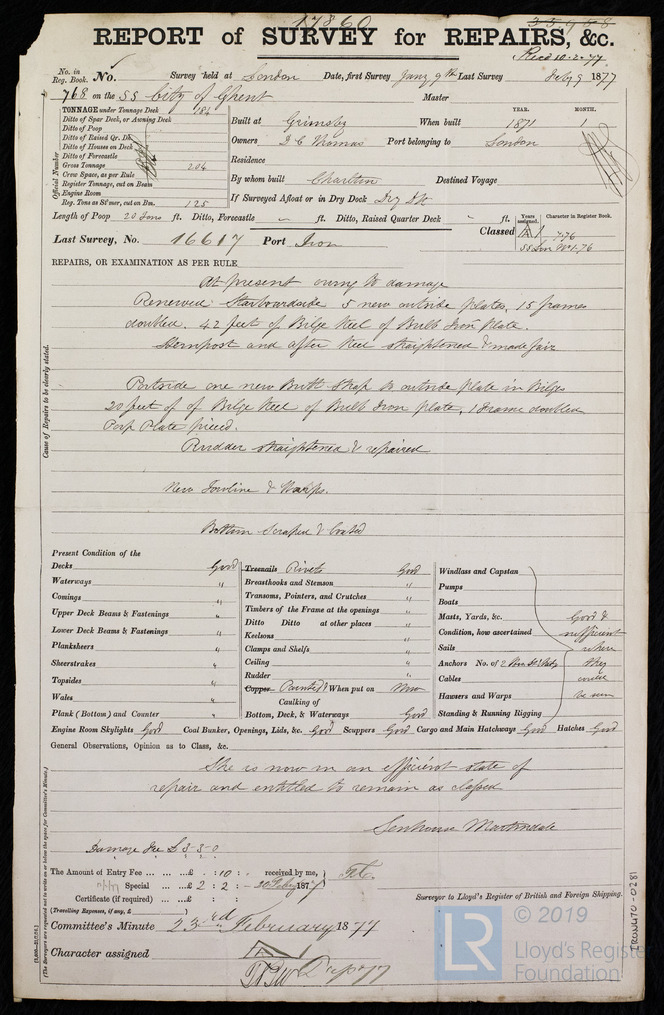 17860
35988
REPORT of SURVEY for REPAIRS, &c.
Recd 10.2.77
No. in Reg. Book. No. Survey held at London Date, first Survey Jany 9th Last Survey Feby 9 1877
768 on the SS City of Ghent Master
TONNAGE under Tonnage Deck 184
Ditto of Spar Deck, or Awning Deck
Ditto of Poop
Ditto of Raised Qr. Dk
Ditto of Houses on Deck
Ditto of Forecastle
Gross Tonnage 204
Crew Space, as per Rule
Register Tonnage, cut on Beam
Engine Room
Reg. Tons as St'mer, cut on Bm. 125
Official Number
YEAR. MONTH.
Built at Grimsby When built 1871 1
Owners D C Thomas Port belonging to London
Residence
By whom built Charlton Destined Voyage
If Surveyed Afloat or in Dry Dock Dry Dk
Length of Poop 20 Tons ft. Ditto, Forecastle " ft. Ditto, Raised Quarter Deck " ft.
Classed Years assigned. Character in Register Book.
A1 7.76
SS Lon No1-76
Last Survey, No. 16617 Port Iron
REPAIRS, OR EXAMINATION AS PER RULE
At present owing to damage
Renewed Starboardside 5 new outside plates, 15 frames
doubled. 42 feet of Bilge Keel of Bulb Iron Plate.
Sternpost and after Keel straightened & made fair
Portside one new Butt Strap to outside plate in Bilges
20 feet of of Bilge Keel of Bulb Iron plate, 1 Frame doubled
Poop Plate pieced.
Rudder straightened & repaired
New Towline & Warps.
Bottom Scraped & Coated
Cause of Repairs to be clearly stated.
Present Condition of the
Decks Good
Waterways "
Comings "
Upper Deck Beams & Fastenings "
Lower Deck Beams & Fastenings "
Planksheers "
Sheerstrakes "
Topsides "
Wales "
Plank (Bottom) and Counter "
Treenails Rivets Good
Breasthooks and Stemson "
Transoms, Pointers, and Crutches "
Timbers of the Frame at the openings "
Ditto Ditto at other places "
Keelsons "
Clamps and Shelfs "
Ceiling "
Rudder "
Copper Painted When put on Now
Caulking of
Bottom, Deck, & Waterways Good
Windlass and Capstan
Pumps
Boats
Masts, Yards, &c. Good &
Condition, how ascertained sufficient
Sails where
Anchors No. of they
Cables could
Hawsers and Warps be seen
Standing & Running Rigging
Engine Room Skylights Good Coal Bunker, Openings, Lids, &c. Good Scuppers Good Cargo and Main Hatchways Good Hatches Good
General Observations, Opinion as to Class, &c.
She is now in an efficient state of
repair and entitled to remain as classed
Senhouse Martindale
Damage Fee £3-3-0
The Amount of Entry Fee ... ... £ : 10 : received by me,
Special ... ... £ 2 : 2 : - 20 Feby 1877
Certificate (if required) ... £ : :
(Travelling Expenses, if any, £ )
Surveyor to Lloyd's Register of British and Foreign Shipping.
Committee's Minute 23rd February 1877
Character assigned
(The Surveyors are requested not to write on or below the space for Committee's Minute.)
IRON470-0281
LR
© 2019
Lloyd's Register
Foundation